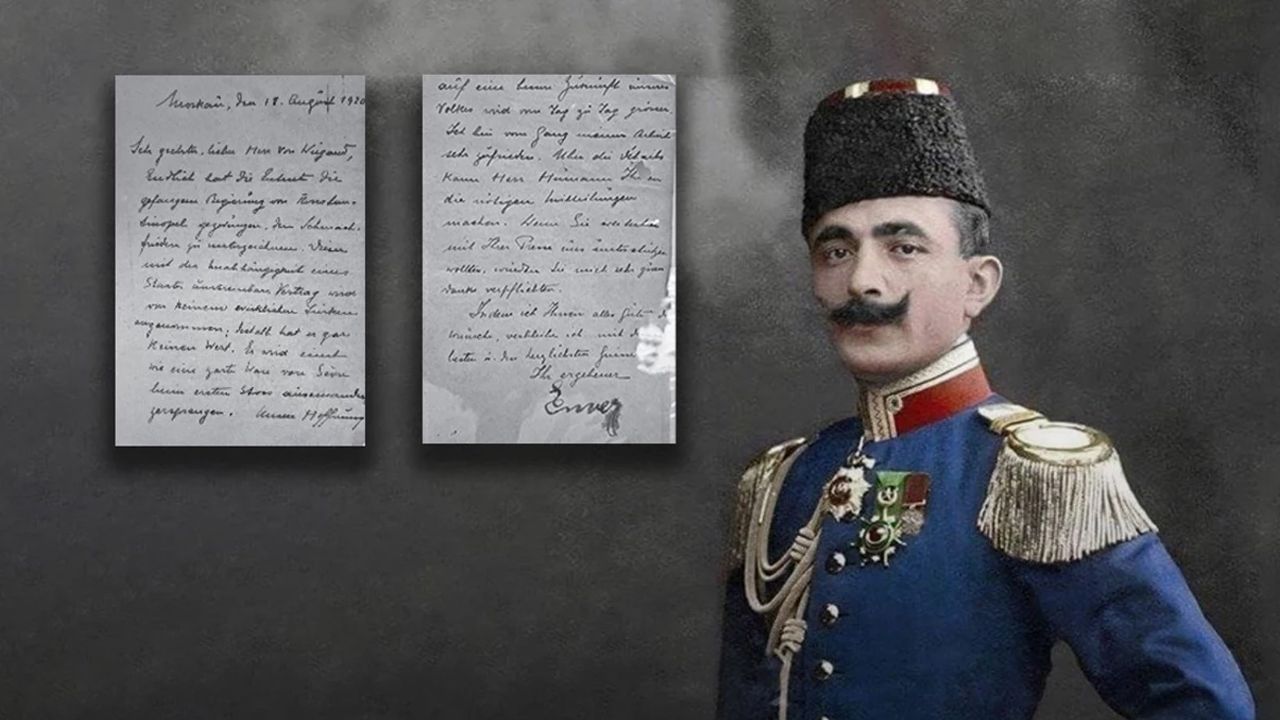 Moskau, den 18. August 1920
Sehr geehrter, lieber Herr von Wiegand,
Endlich hat die Entente die
gefangene Regierung von Konstan-
tinopel gezwungen, den Schmach-
frieden zu unterzeichnen. Dieser
mit der Unabhängigkeit eines
Staates unvereinbare Vertrag wird
von keinem wirklichen Türken
angenommen; deshalb hat er gar
keinen Wert. Es wird einmal
wie eine zarte Ware von Sèvres
beim ersten Stoss auseinander
gesprungen. Unsere Hoffnung
auf eine bessere Zukunft unseres
Volkes wird von Tag zu Tag grösser
Ich bin vom Gang meiner Arbeit
sehr zufrieden. Über die Details
kann Herr Ihnen
die nötigen Mitteilungen
machen. Wenn Sie weiterhin
mit Ihrer Presse uns unterstützen
wollten, würden Sie mich sehr zum
danke verpflichten.
Indem ich Ihnen alles Gute
wünsche, verbleibe ich mit
besten u. den herzlichsten
Ihr ergebener
Enver